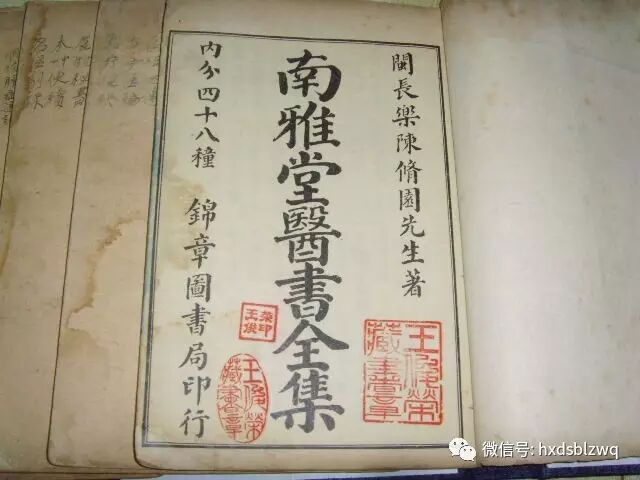 閩長樂陳脩園先生著
南雅堂醫書全集
內分四十八種
錦章圖書局印行
王俊
榮印
王俊榮
藏書章
王俊榮
藏書章
微信号: hxdsblzwq